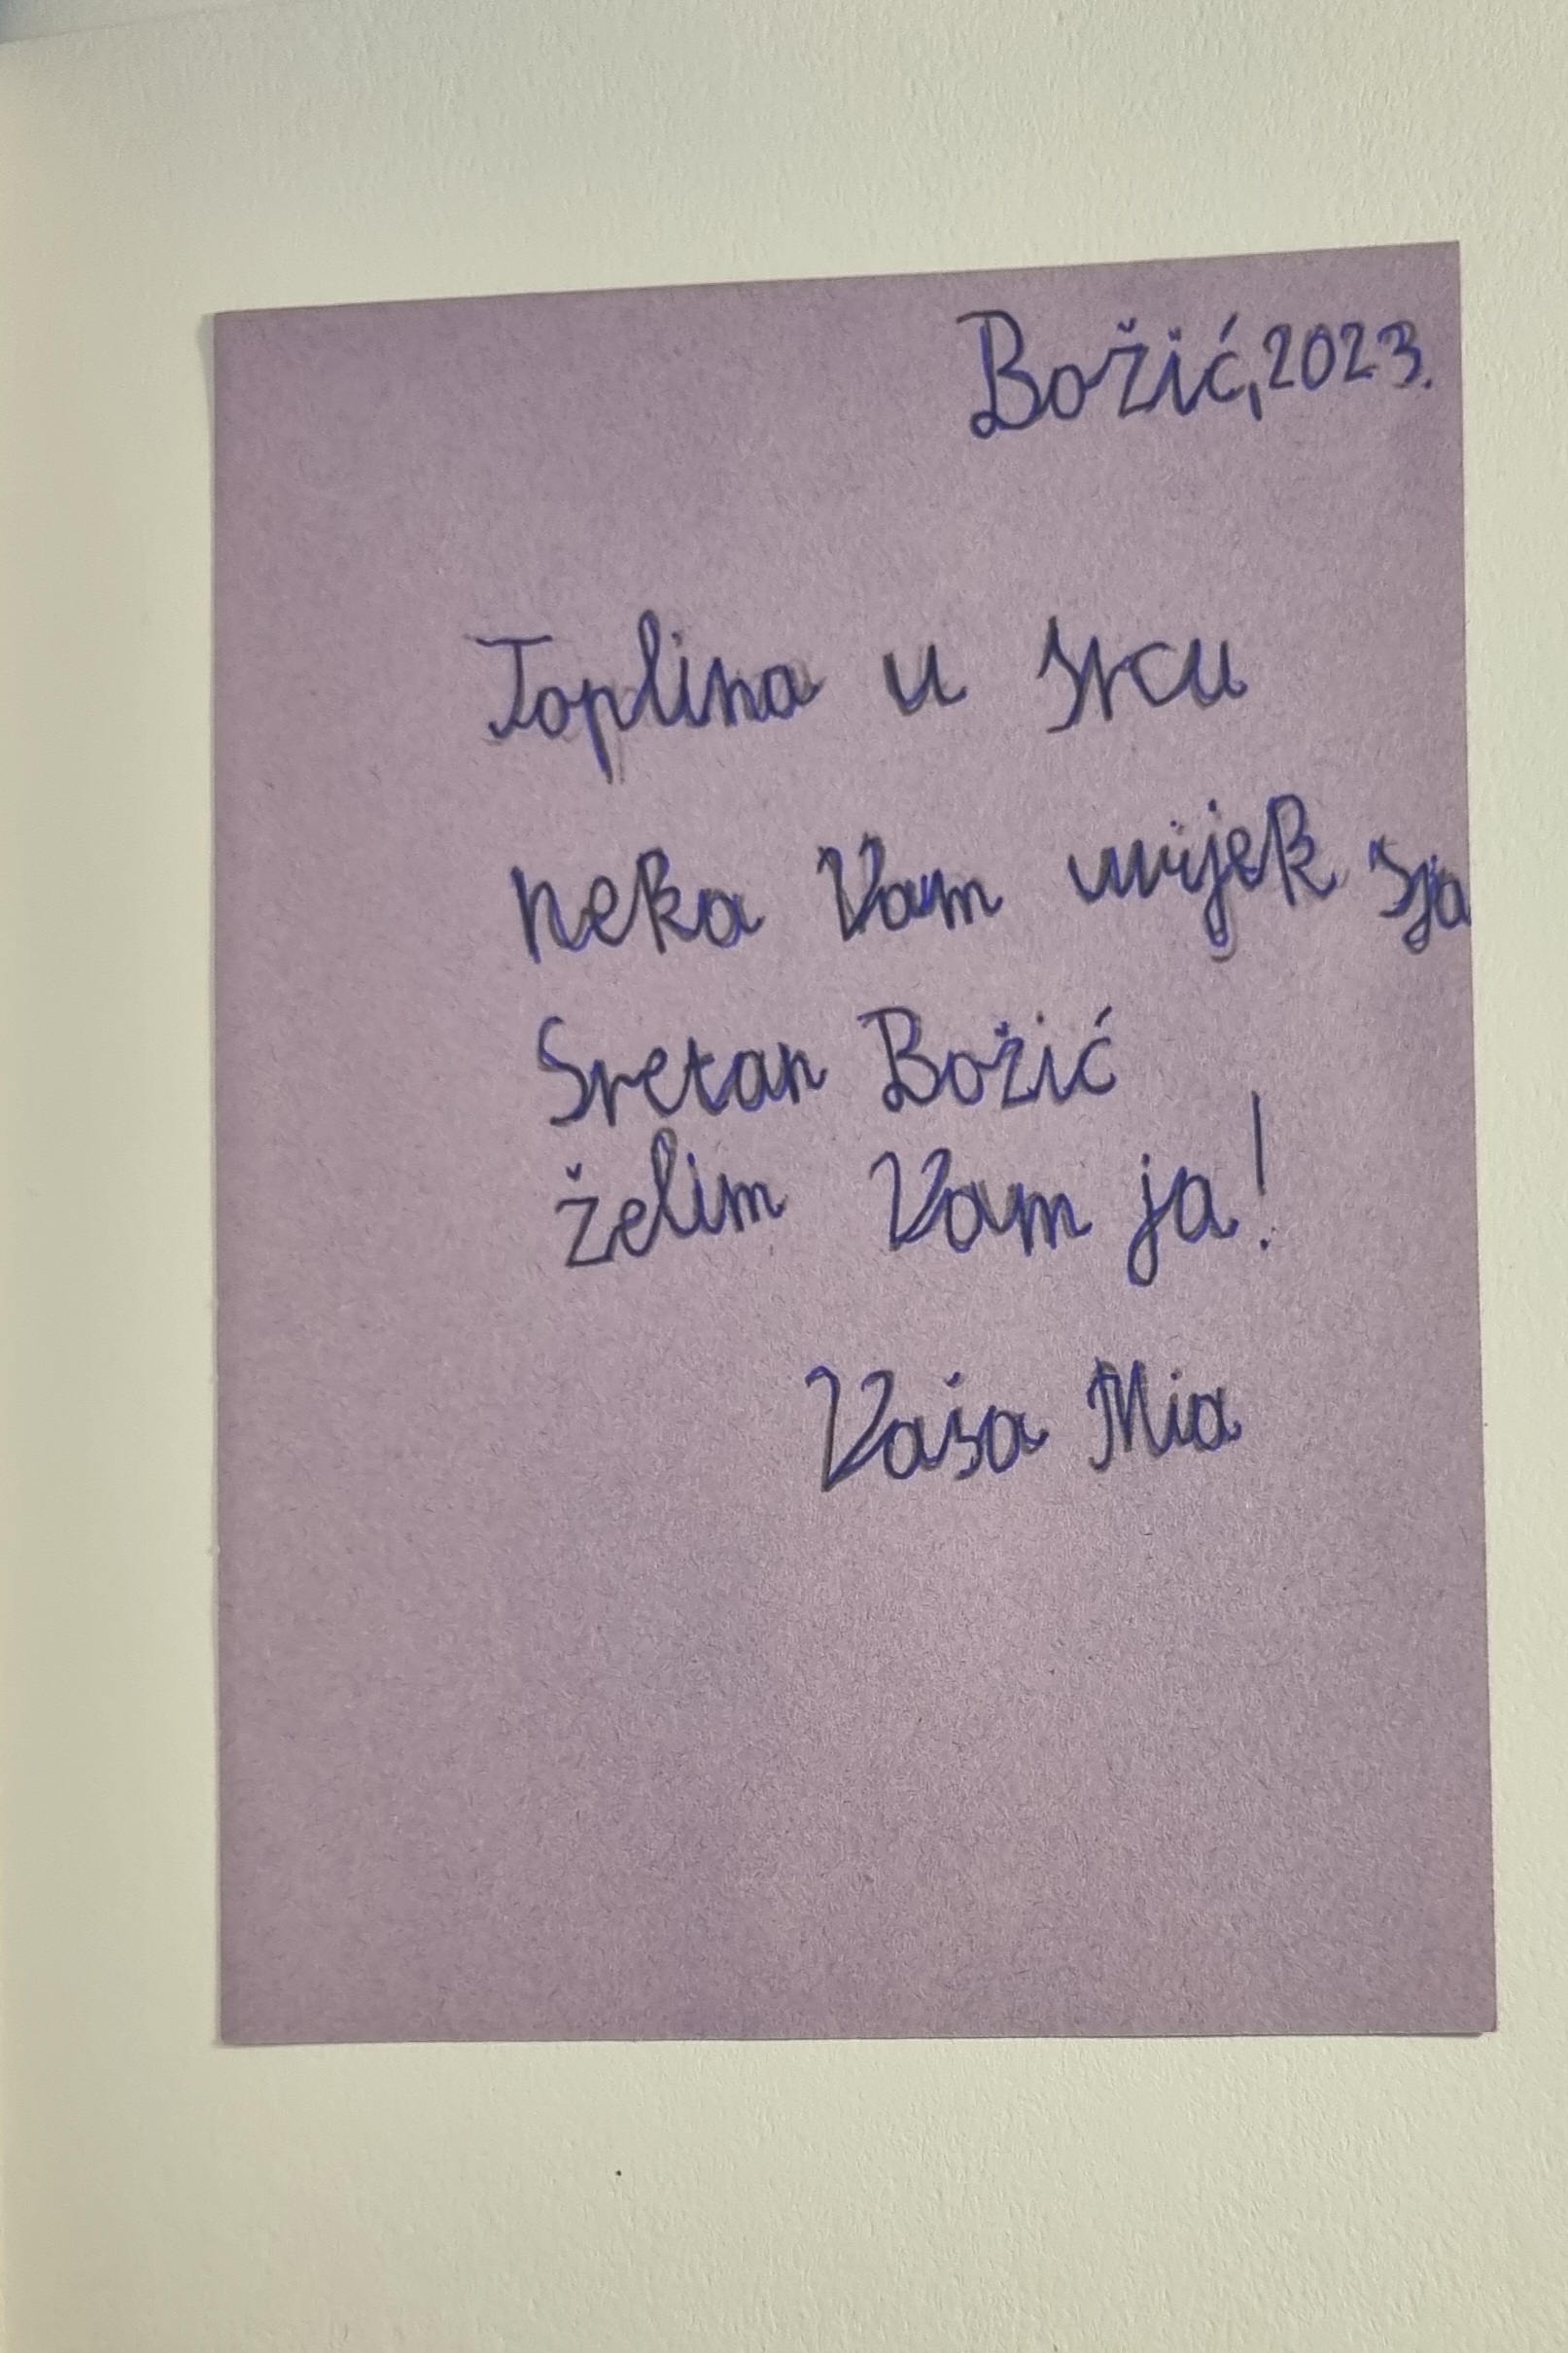 Božić, 2023.
Toplina u srcu
neka Vam uvijek sja
Sretan Božić
želim Vam ja!
Vaša Mia